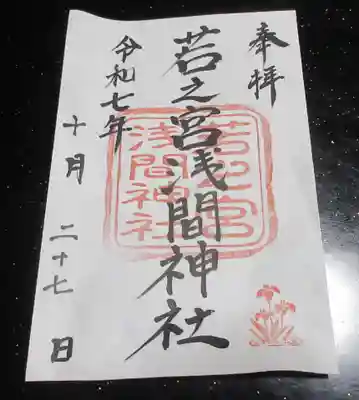 奉拝
若之宮浅間神社
若之宮
浅間神社
令和七年
十月 二十七 日